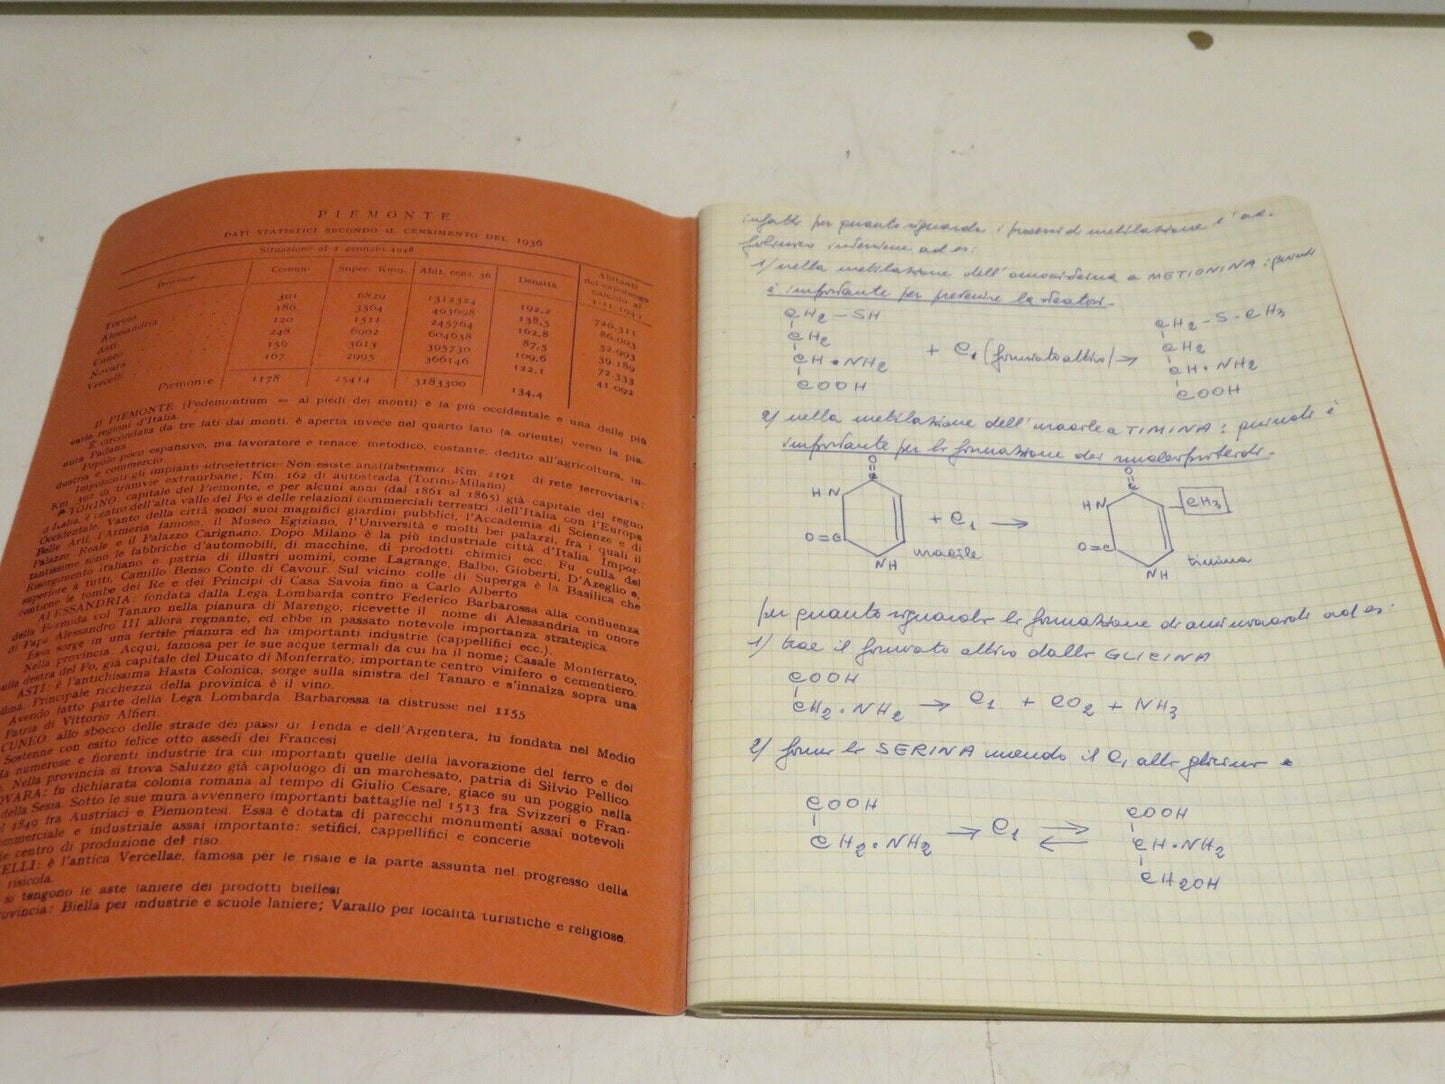 PIEMONTE
DATI STATISTICI SECONDO IL CENSIMENTO DEL 1936
Situazione al 1 gennaio 1948
Province Comuni Super. Kmq. Abit. cens. 36 Densità Abitanti del capoluogo calcolo al
Torino 301 6829 1312324 192,2
Alessandria 186 3564 493698 138,5 86.003
Asti 120 1511 245764 162,8 52.993
Cuneo 248 6902 604638 87,5 39.189
Novara 3613 395730 109,6 72.333
Vercelli 167 2995 366146 122,1 41.092
Piemonte 1178 25414 3183300 134,4
Il PIEMONTE (Pedemontium = ai piedi dei monti) è la più occidentale e una delle più
varie regioni d'Italia.
È circondata da tre lati dai monti, è aperta invece nel quarto lato (a oriente) verso la pia-
nura Padana.
Popolo poco espansivo, ma lavoratore e tenace, metodico, costante, dedito all'agricoltura, in-
dustria e commercio.
Imponenti gli impianti idroelettrici. Non esiste analfabetismo. Km. 2191 di rete ferroviaria;
Km. 392 di tramvie extraurbane; Km. 162 di autostrada (Torino-Milano)
TORINO: capitale del Piemonte, e per alcuni anni (dal 1861 al 1865) già capitale del regno
d'Italia, è centro dell'alta valle del Po e delle relazioni commerciali terrestri dell'Italia con l'Europa
Occidentale. Vanto della città sono i suoi magnifici giardini pubblici, l'Accademia di Scienze e di
Belle Arti, l'Armeria famosa, il Museo Egiziano, l'Università e molti bei palazzi, fra i quali il
Palazzo Reale e il Palazzo Carignano. Dopo Milano è la più industriale città d'Italia. Impor-
tantissime sono le fabbriche d'automobili, di macchine, di prodotti chimici ecc. Fu culla del
Risorgimento italiano e patria di illustri uomini, come Lagrange, Balbo, Gioberti, D'Azeglio e,
superiore a tutti, Camillo Benso Conte di Cavour. Sul vicino colle di Superga è la Basilica che
contiene le tombe dei Re e dei Principi di Casa Savoia fino a Carlo Alberto
ALESSANDRIA: fondata dalla Lega Lombarda contro Federico Barbarossa alla confluenza
della Bormida col Tanaro nella pianura di Marengo, ricevette il nome di Alessandria in onore
di Papa Alessandro III allora regnante, ed ebbe in passato notevole importanza strategica
Essa sorge in una fertile pianura ed ha importanti industrie (cappellifici ecc.).
Nella provincia: Acqui, famosa per le sue acque termali da cui ha il nome; Casale Monferrato,
sulla destra del Po, già capitale del Ducato di Monferrato, importante centro vinifero e cementiero.
ASTI: è l'antichissima Hasta Colonica, sorge sulla sinistra del Tanaro e s'innalza sopra una
Principale ricchezza della provinica è il vino.
Avendo fatto parte della Lega Lombarda Barbarossa la distrusse nel 1155
Patria di Vittorio Alfieri.
CUNEO: allo sbocco delle strade dei passi di Tenda e dell'Argentera, fu fondata nel Medio
Sostenne con esito felice otto assedi dei Francesi
Ha numerose e fiorenti industrie fra cui importanti quelle della lavorazione del ferro e dei
Nella provincia si trova Saluzzo già capoluogo di un marchesato, patria di Silvio Pellico
OVARA: fu dichiarata colonia romana al tempo di Giulio Cesare, giace su un poggio nella
della Sesia. Sotto le sue mura avvennero importanti battaglie nel 1513 fra Svizzeri e Fran-
1849 fra Austriaci e Piemontesi. Essa è dotata di parecchi monumenti assai notevoli
mmerciale e industriale assai importante: setifici, cappellifici e concerie
centro di produzione del riso.
ELLI: è l'antica Vercellae, famosa per le risaie e la parte assunta nel progresso della
risicola.
si tengono le aste laniere dei prodotti biellesi
ovincia: Biella per industrie e scuole laniere; Varallo per località turistiche e religiose.
infatti per quanto riguarda i processi di metilazione l'ac.
folinico interviene ad es:
1) nella metilazione dell'omocisteina a METIONINA: quindi
è importante per prevenire la steatosi.
CH2 - SH
CH2
CH • NH2
COOH
+ C1 (formiato attivo) →
CH2 - S - CH3
CH2
CH • NH2
COOH
2) nella metilazione dell'uracile a TIMINA: quindi è
importante per la formazione dei nucleoproteidi.
O
C
HN
O=C
NH
uracile
+ C1 →
O
C
HN
CH3
O=C
NH
timina
Per quanto riguarda la formazione di aminoacidi ad es:
1) trae il formiato attivo dalla GLICINA
COOH
CH2 • NH2 → C1 + CO2 + NH3
2) forma la SERINA unendo il C1 alla glicina
COOH
CH2 • NH2 → C1 ⇌
COOH
CH • NH2
CH2OH